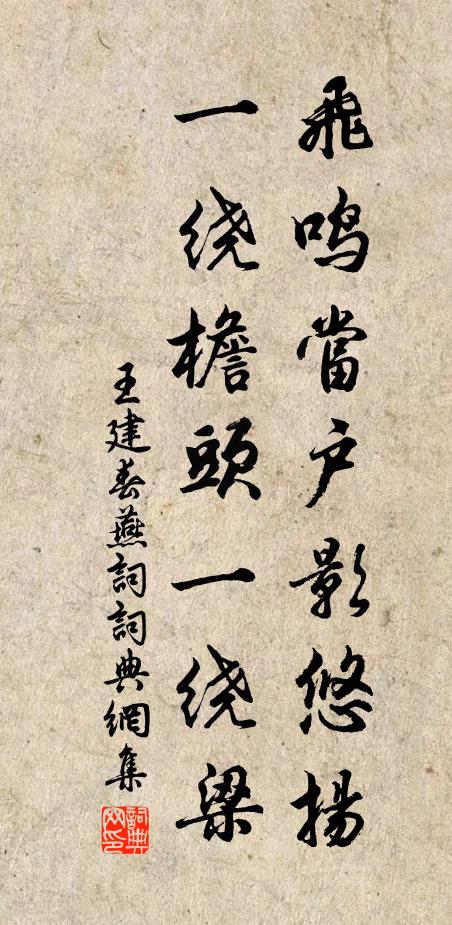 飛鸣當户影悠揚
一绕檐頭一绕梁
王建春燕詞詞典網集
詞典网印